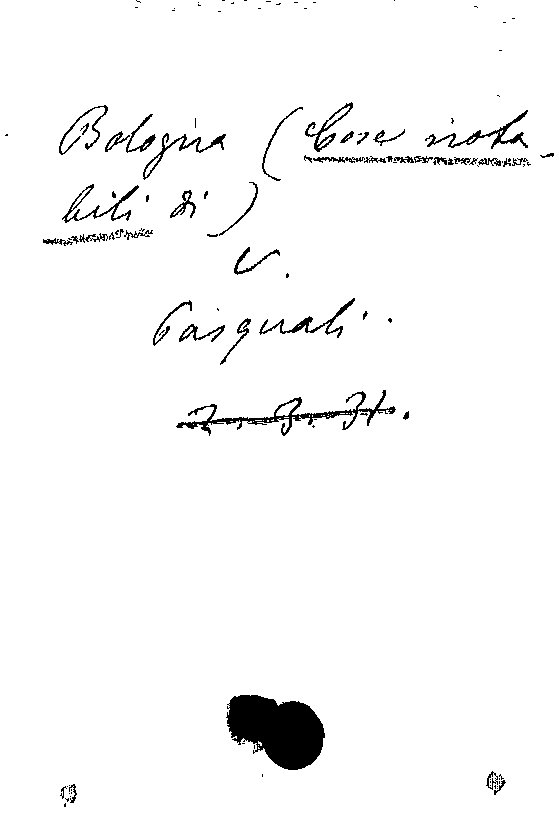 Bologna (Cose nota-
bili di)
V.
Pasquali.
2. 3. 31.